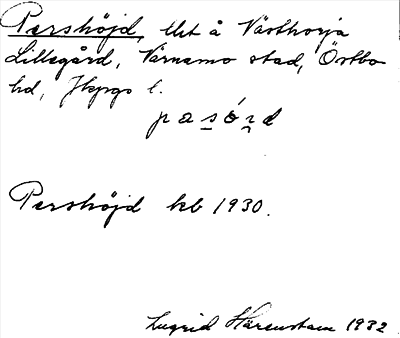 Pershöjd, tlt å Västhorja
Lillegård, Värnamo stad, Östbo
hd, Jkpgs l.
pasó̱ṉd
Pershöjd kb 1930.
Ingrid Härenstam 1932